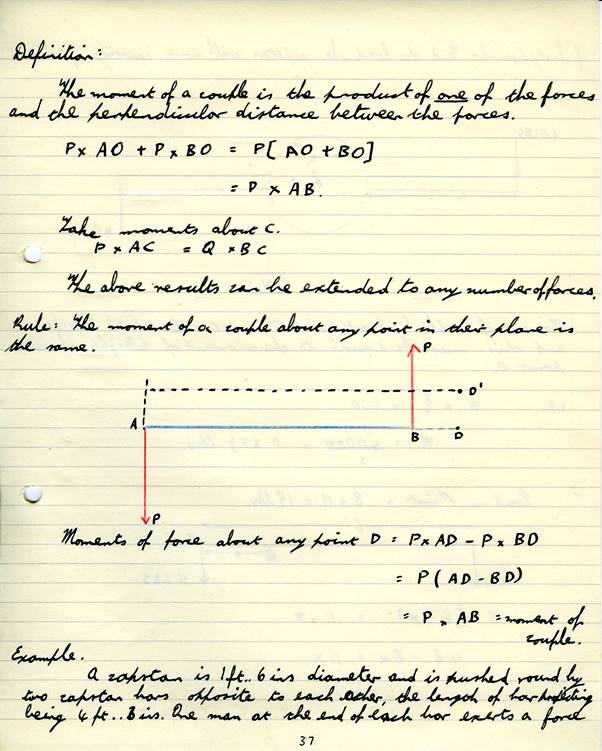 Definition:
The moment of a couple is the product of one of the forces
and the perpendicular distance between the forces.
P x AO + P x BO = P[AO + BO]
= P x AB.
Take moments about C.
P x AC = Q x BC
The above results can be extended to any number of forces.
Rule: The moment of a couple about any point in their plane is
the same.
P
D'
A
B
D
P
Moments of force about any point D = P x AD - P x BD
= P(AD - BD)
= P x AB = moment of
couple.
Example.
A capstan is 1ft.. 6 ins diameter and is pushed round by
two capstan bars opposite to each other, the length of bar projecting
being 4 ft.. 3 ins. One man at the end of each bar exerts a force
37